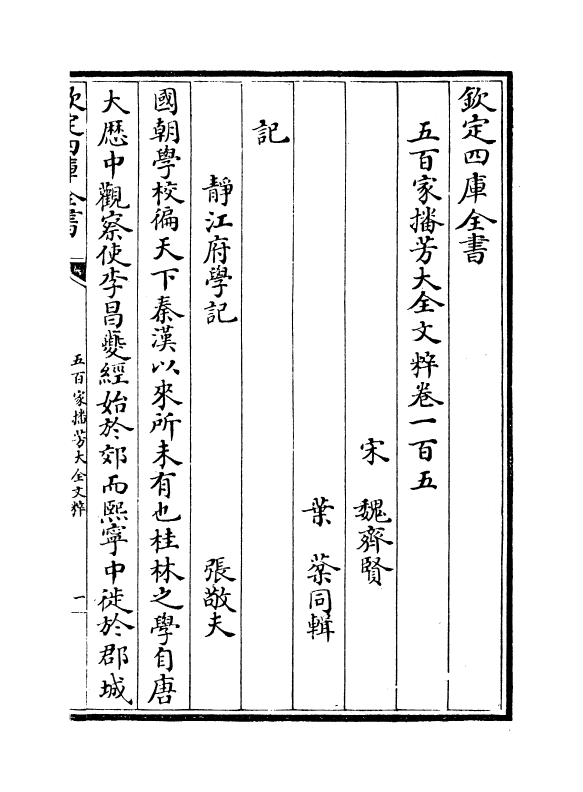 欽定四庫全書
五百家播芳大全文粹卷一百五
宋　魏齊賢
葉　棻同輯
記
靜江府學記　張敬夫
國朝學校徧天下秦漢以來所未有也桂林之學自唐
大歷中觀察使李昌夔經始於郊而熙寧中徙於郡城
欽定四庫全書
五百家播芳大全文粹
一